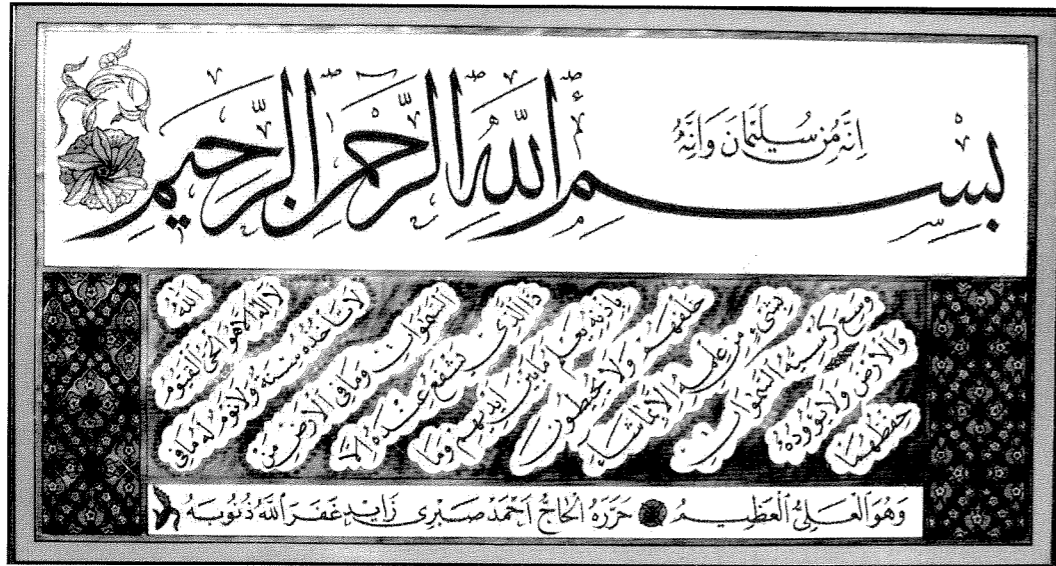 اِنَّهُ مِنْ سُلَيْمَانَ وَاِنَّهُ
بِسْمِ اللّٰهِ الرَّحْمٰنِ الرَّحِيمِ
اَللّٰهُ
لَا اِلٰهَ اِلَّا هُوَ الْحَىُّ الْقَيُّومُ
لَا تَأْخُذُهُ سِنَةٌ وَلَا نَوْمٌ لَهُ مَا فِى
السَّمٰوَاتِ وَمَا فِى الْاَرْضِ مَنْ
ذَا الَّذِى يَشْفَعُ عِنْدَهُ اِلَّا
بِاِذْنِهِ يَعْلَمُ مَا بَيْنَ اَيْدِيهِمْ وَمَا
خَلْفَهُمْ وَلَا يُحِيطُونَ
بِشَىْءٍ مِنْ عِلْمِهِ اِلَّا بِمَا شَاءَ
وَسِعَ كُرْسِيُّهُ السَّمٰوَاتِ
وَالْاَرْضَ وَلَا يَؤُودُهُ
حِفْظُهُمَا
وَهُوَ الْعَلِىُّ الْعَظِيمُ حَرَّرَهُ الْحَاجُّ اَحْمَدْ صَبْرِى زَايِدْ غَفَرَ اللّٰهُ ذُنُوبَهُ